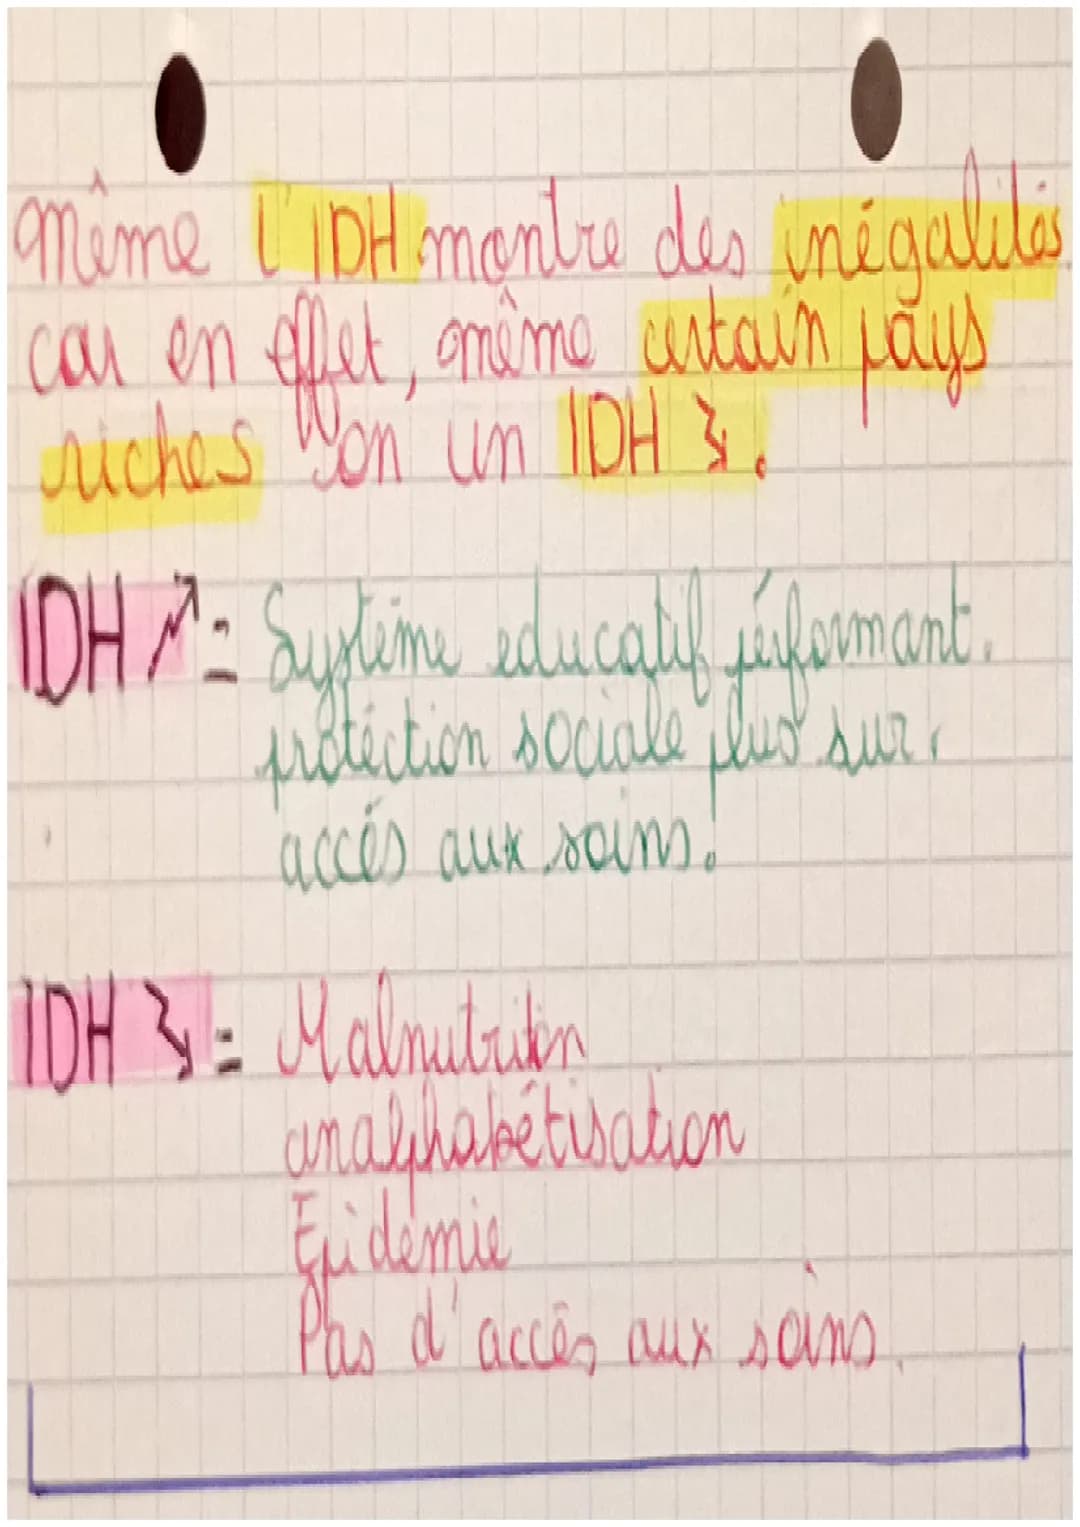 même l'IDH montre des inégalités
car en effet, même certain pays
riches on un IDH ↘.
IDH ↗ = Système educatif performant.
protéction sociale plus sur.
accés aux soins.
IDH ↘ = Malnutrition
analphabétisation
Epidémie
Pas d'accès aux soins.